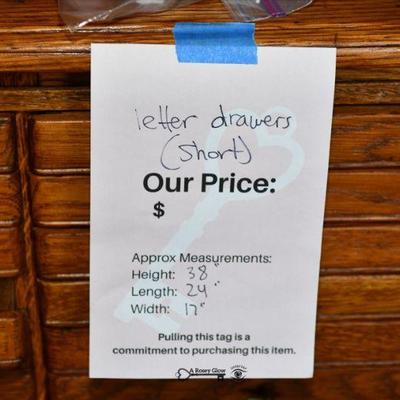 letter drawers
(short)
Our Price:
$
Approx Measurements:
Height: 38"
Length: 24"
Width: 17"
Pulling this tag is a
commitment to purchasing this item.
A Rosey Glow